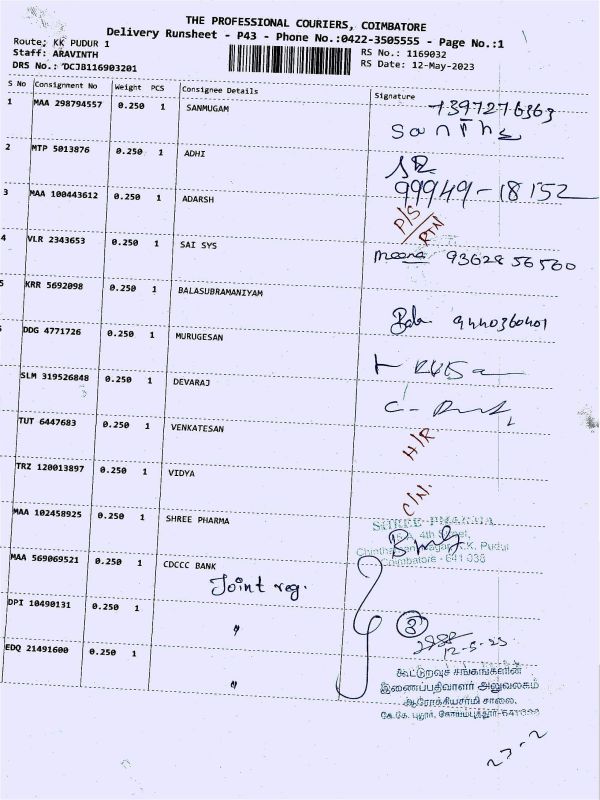 THE PROFESSIONAL COURIERS, COIMBATORE
Delivery Runsheet - P43 - Phone No.:0422-3505555 - Page No.:1
Route; KK PUDUR 1
Staff: ARAVINTH
DRS No.: DCJB116903201
RS No.: 1169032
RS Date: 12-May-2023
S No Consignment No Weight PCS Consignee Details Signature
1 MAA 298794557 0.250 1 SANMUGAM 7397276363
2 MTP 5013876 0.250 1 ADHI
99949-18152
3 MAA 100443612 0.250 1 ADARSH P/S RTN
4 VLR 2343653 0.250 1 SAI SYS meena 9362856560
5 KRR 5692098 0.250 1 BALASUBRAMANIYAM 9440360401
DDG 4771726 0.250 1 MURUGESAN
SLM 319526848 0.250 1 DEVARAJ
TUT 6447683 0.250 1 VENKATESAN H/R
TRZ 120013897 0.250 1 VIDYA C/N.
MAA 102458925 0.250 1 SHREE PHARMA
SHREE PHARMA
4th Street,
K.K. Pudur
Coimbatore - 641 038
MAA 569069521 0.250 1 CDCCC BANK
Joint reg.
DPI 10490131 0.250 1 〃 3
12-5-23
EDQ 21491600 0.250 1 〃
கூட்டுறவுச் சங்கங்களின்
இணைப்பதிவாளர் அலுவலகம்
சாலை,
கே.கே. புதூர், கோயம்புத்தூர்-641038
27-2